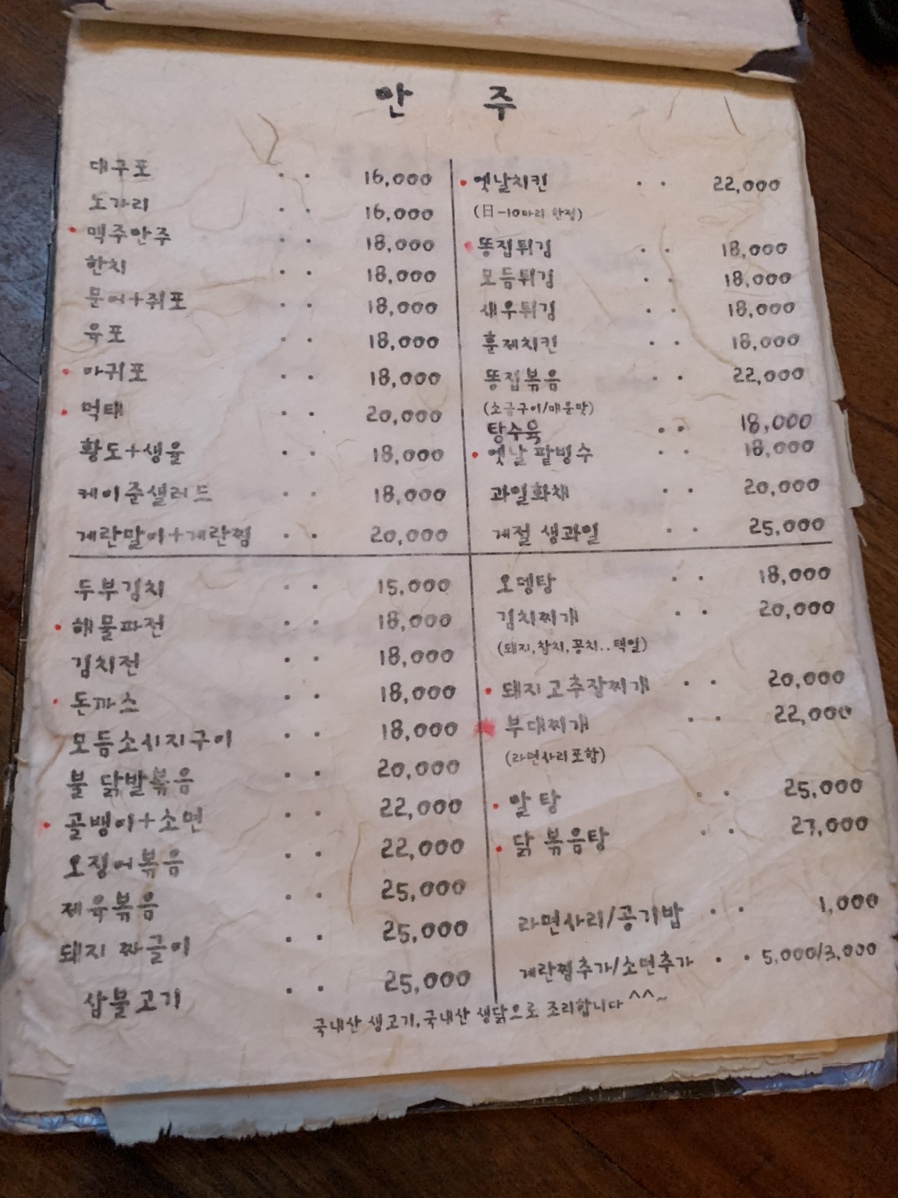 안 주
대구포 . . 16,000
노가리 . . 16,000
맥주안주 . . 18,000
한치 . . 18,000
문어+쥐포 . . 18,000
육포 . . 18,000
아귀포 . . 18,000
먹태 . . 20,000
황도+생율 . . 18,000
케이준샐러드 . . 18,000
계란말이+계란찜 . . 20,000
옛날치킨 . . 22,000
(日-10마리 한정)
똥집튀김 . . 18,000
모듬튀김 . . 18,000
새우튀김 . . 18,000
훈제치킨 . . 18,000
똥집볶음 . . 22,000
(소금구이/매운맛)
탕수육 . . 18,000
옛날 팥빙수 . . 18,000
과일화채 . . 20,000
계절 생과일 . . 25,000
두부김치 . . 15,000
해물파전 . . 18,000
김치전 . . 18,000
돈까스 . . 18,000
모듬소시지구이 . . 18,000
불 닭발볶음 . . 20,000
골뱅이+소면 . . 22,000
오징어볶음 . . 22,000
제육볶음 . . 25,000
돼지 짜글이 . . 25,000
삼불고기 . . 25,000
오뎅탕 . . 18,000
김치찌개 . . 20,000
(돼지,참치,꽁치..택일)
돼지고추장찌개 . . 20,000
부대찌개 . . 22,000
(라면사리포함)
알탕 . . 25,000
닭 볶음탕 . . 27,000
라면사리/공기밥 . . 1,000
계란찜추가/소면추가 . . 5,000/3,000
국내산 생고기,국내산 생닭으로 조리합니다 ^^~